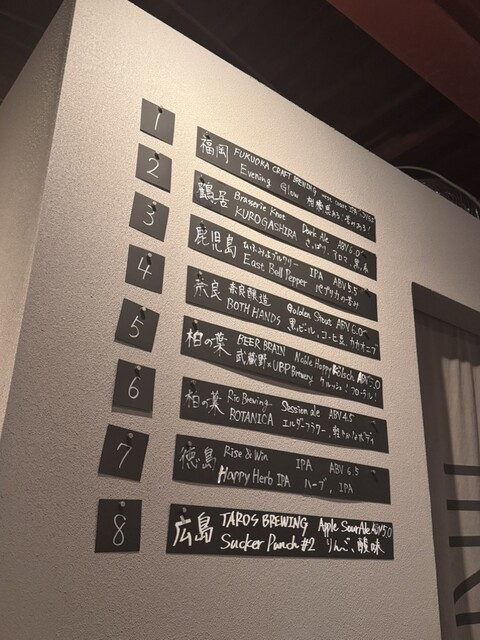 1
福岡 FUKUOKA CRAFT BREWING West Coast IPA
Evening Glow
2
鶴居 Brasserie Knot Dark Ale ABV 6.0
KUROGASHIRA さっぱり、アロマ、黒
3
鹿児島 ブルワリー IPA ABV 5.5
East Bell Pepper パプリカの苦み
4
奈良 奈良醸造 Golden Stout ABV 6.0
BOTH HANDS 黒ビール、コーヒー豆、カカオニブ
5
柏の葉 BEER BRAIN Noble Hoppy Kölsch ABV 5.0
武蔵野×UBP Brewery ケルシュ!フローラル!
6
柏の葉 Rio Brewing Session ale ABV 4.5
BOTANICA エルダーフラワー、軽やかなボディ
7
徳島 Rise & Win IPA ABV 6.5
Happy Herb IPA ハーブ、IPA
8
広島 TAROS BREWING Apple Sour Ale ABV 5.0
Sucker Punch #2 りんご、酸味